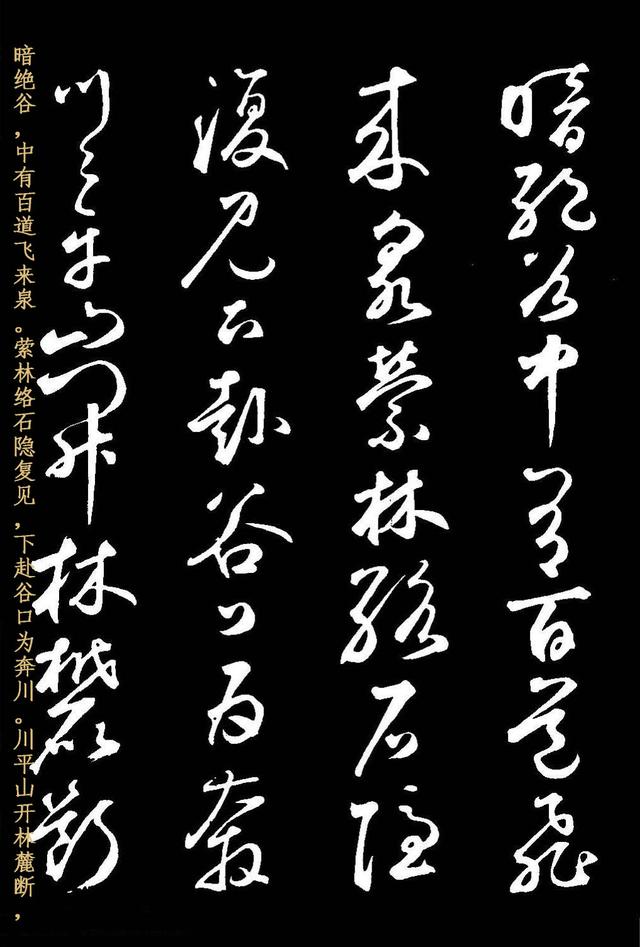 暗絕谷中有百道飛
來泉縈林絡石隱
復見下赴谷口為奔
川々平山開林麓斷
暗绝谷，中有百道飞来泉。萦林络石隐复见，下赴谷口为奔川。川平山开林麓断，